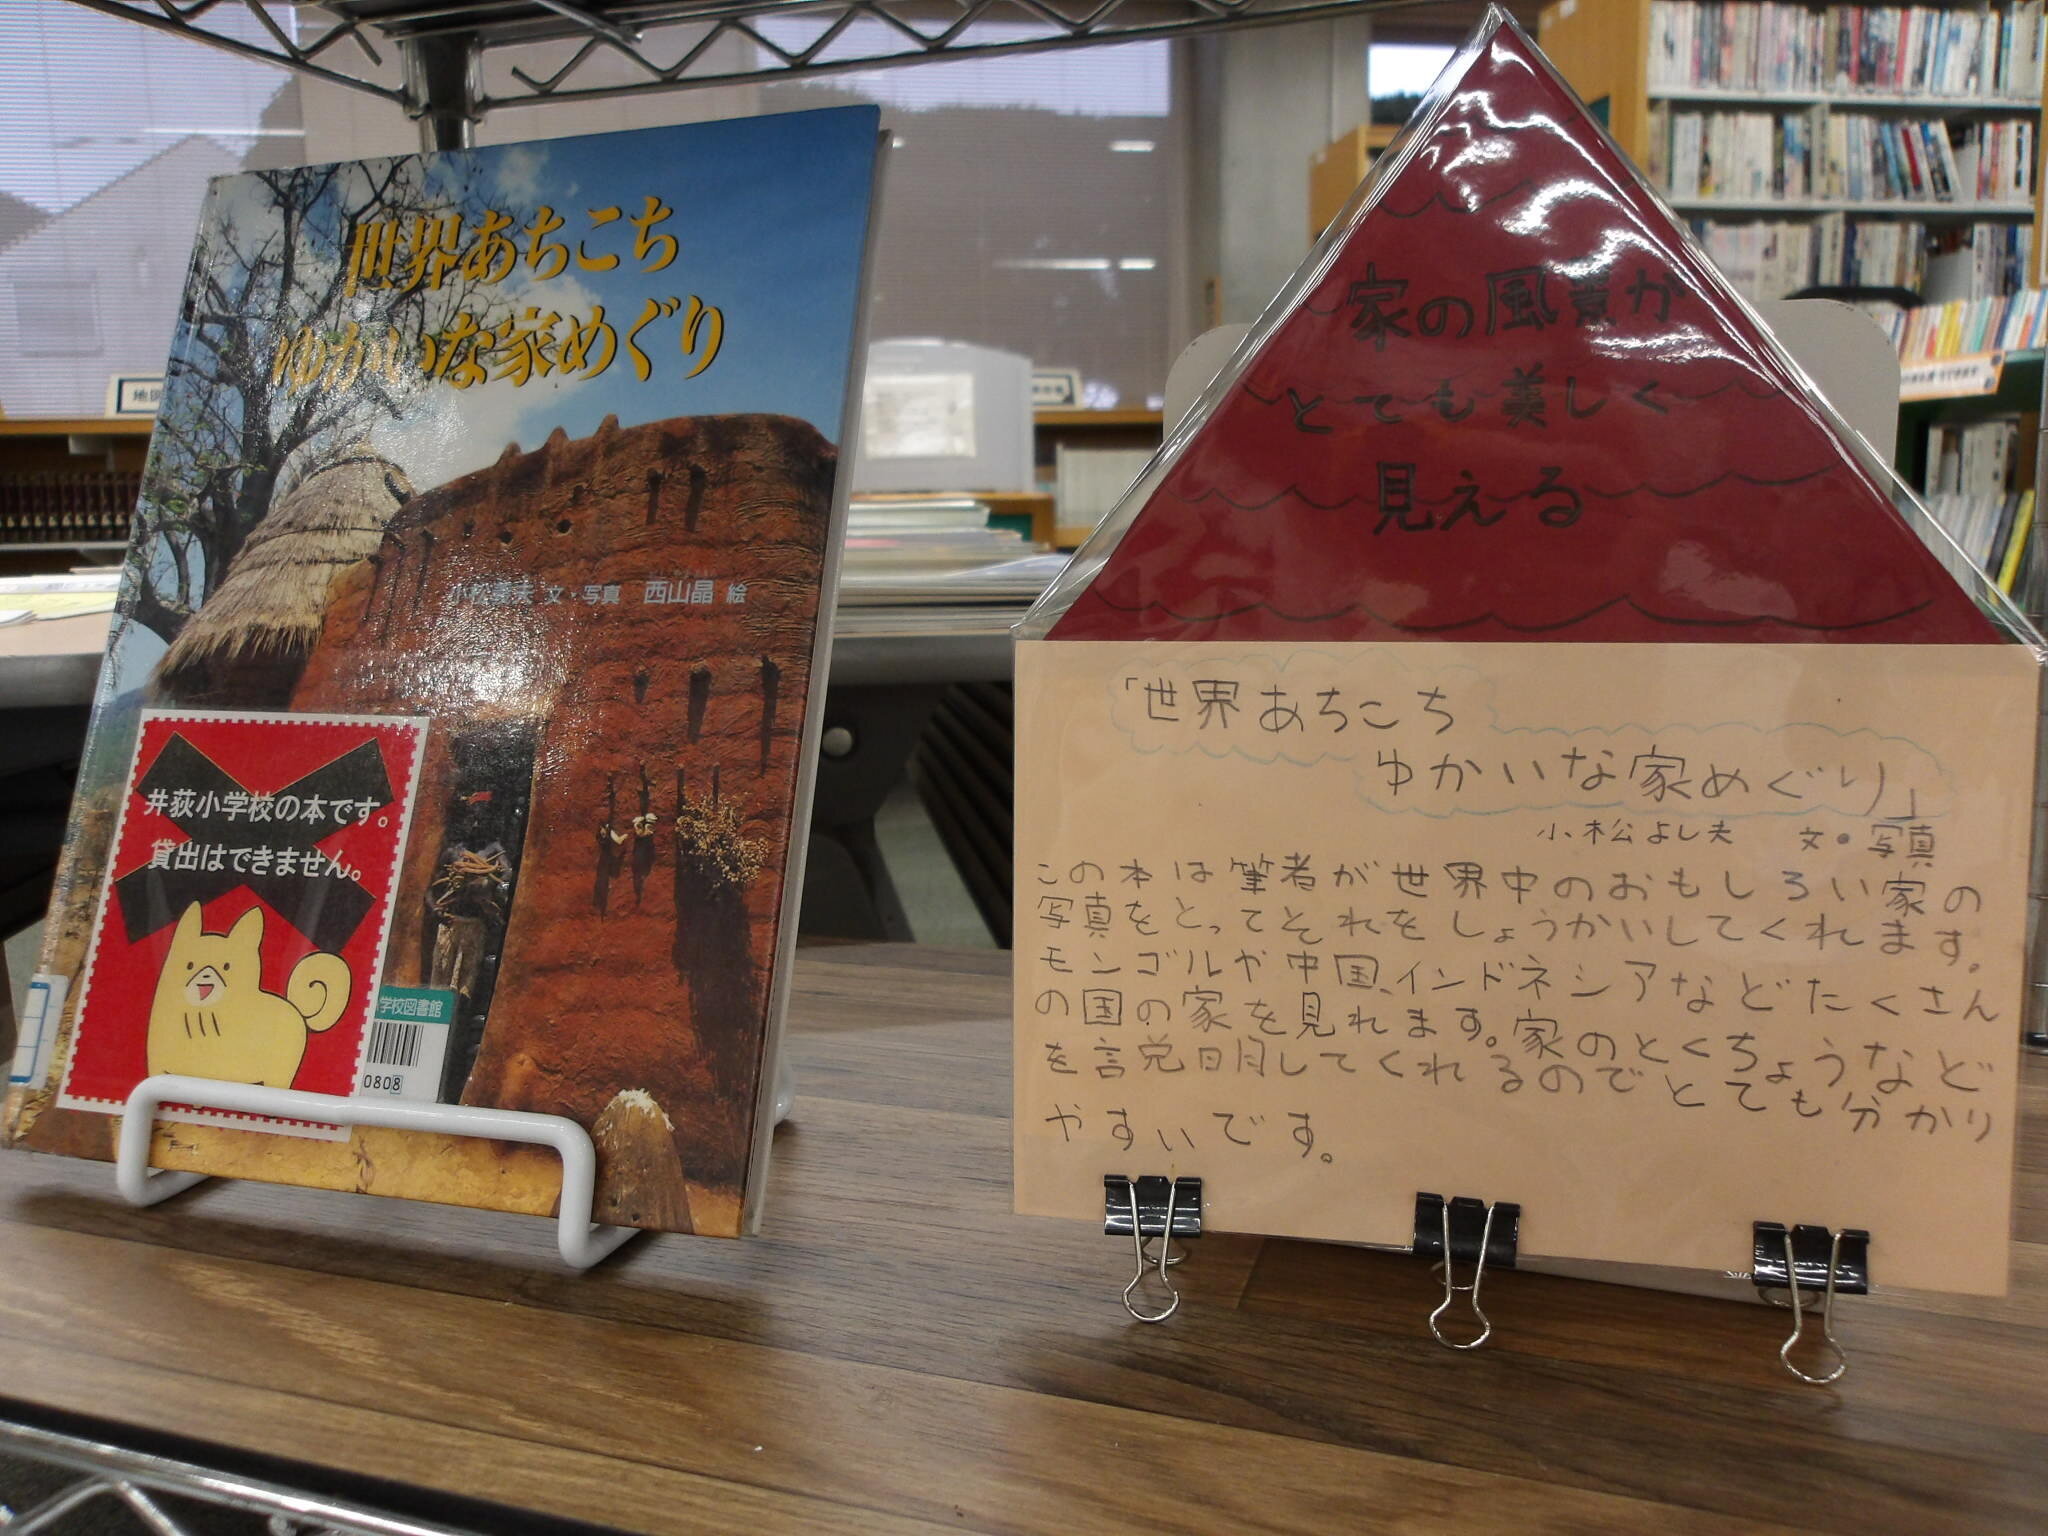 世界あちこち
ゆかいな家めぐり
小松義夫 文・写真 西山晶 絵
井荻小学校の本です。
貸出はできません。
学校図書館
0808
家の風景が
とても美しく
見える
「世界あちこち
ゆかいな家めぐり」
小松よし夫 文・写真
この本は筆者が世界中のおもしろい家の
写真をとってそれをしょうかいしてくれます。
モンゴルや中国、インドネシアなどたくさん
の国の家を見れます。家のとくちょうなど
を説明してくれるのでとても分かり
やすいです。